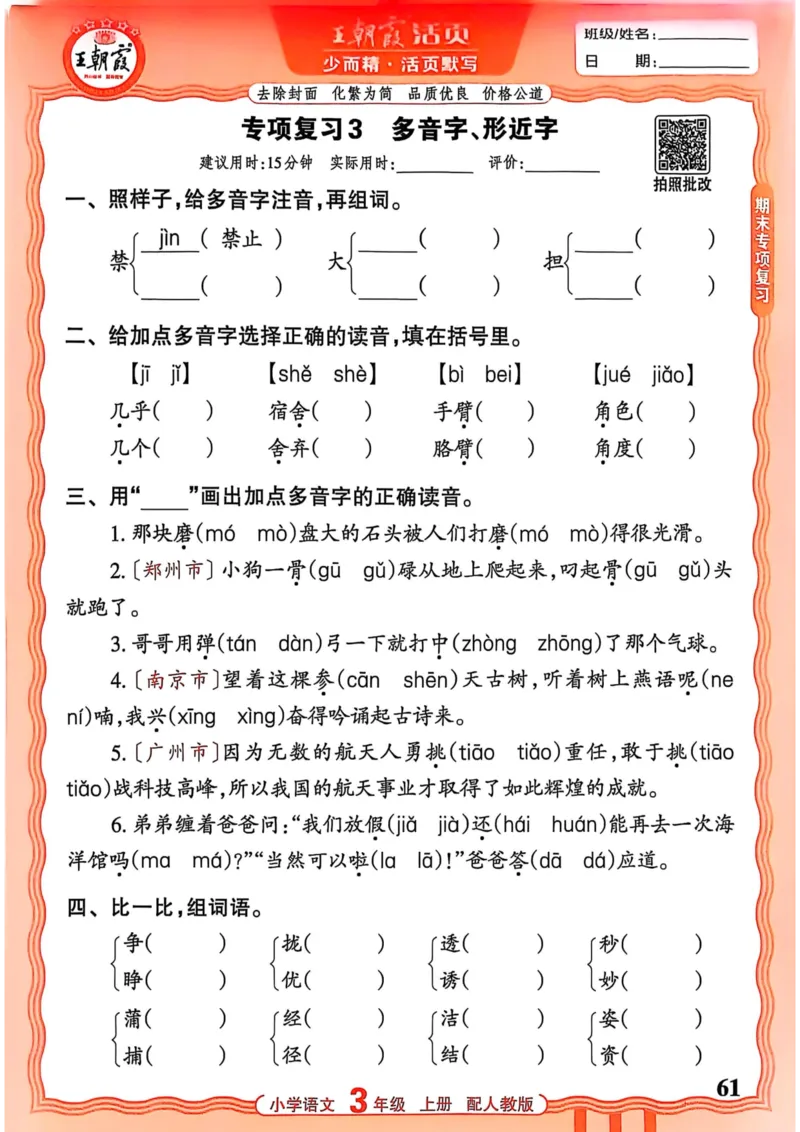 王朝霞
王朝霞 活页
少而精·活页默写
班级/姓名:
日 期:
去除封面 化繁为简 品质优良 价格公道
专项复习3 多音字、形近字
建议用时:15分钟 实际用时: 评价:
拍照批改
期末专项复习
一、照样子,给多音字注音,再组词。
jìn ( 禁止 ) ( ) ( )
禁 大 担
( ) ( ) ( )
二、给加点多音字选择正确的读音,填在括号里。
【jī jǐ】 【shě shè】 【bì bei】 【jué jiǎo】
几乎( ) 宿舍( ) 手臂( ) 角色( )
几个( ) 舍弃( ) 胳臂( ) 角度( )
三、用“____”画出加点多音字的正确读音。
1.那块磨(mó mò)盘大的石头被人们打磨(mó mò)得很光滑。
2.〔郑州市〕小狗一骨(gū gǔ)碌从地上爬起来,叼起骨(gū gǔ)头
就跑了。
3.哥哥用弹(tán dàn)弓一下就打中(zhòng zhōng)了那个气球。
4.〔南京市〕望着这棵参(cān shēn)天古树,听着树上燕语呢(ne
ní)喃,我兴(xīng xìng)奋得吟诵起古诗来。
5.〔广州市〕因为无数的航天人勇挑(tiāo tiǎo)重任,敢于挑(tiāo
tiǎo)战科技高峰,所以我国的航天事业才取得了如此辉煌的成就。
6.弟弟缠着爸爸问:“我们放假(jiǎ jià)还(hái huán)能再去一次海
洋馆吗(ma má)?”“当然可以啦(la lā)!”爸爸答(dā dá)应道。
四、比一比,组词语。
争( ) 拢( ) 透( ) 秒( )
睁( ) 优( ) 诱( ) 妙( )
蒲( ) 经( ) 洁( ) 姿( )
捕( ) 径( ) 结( ) 资( )
61
小学语文 3年级 上册 配人教版